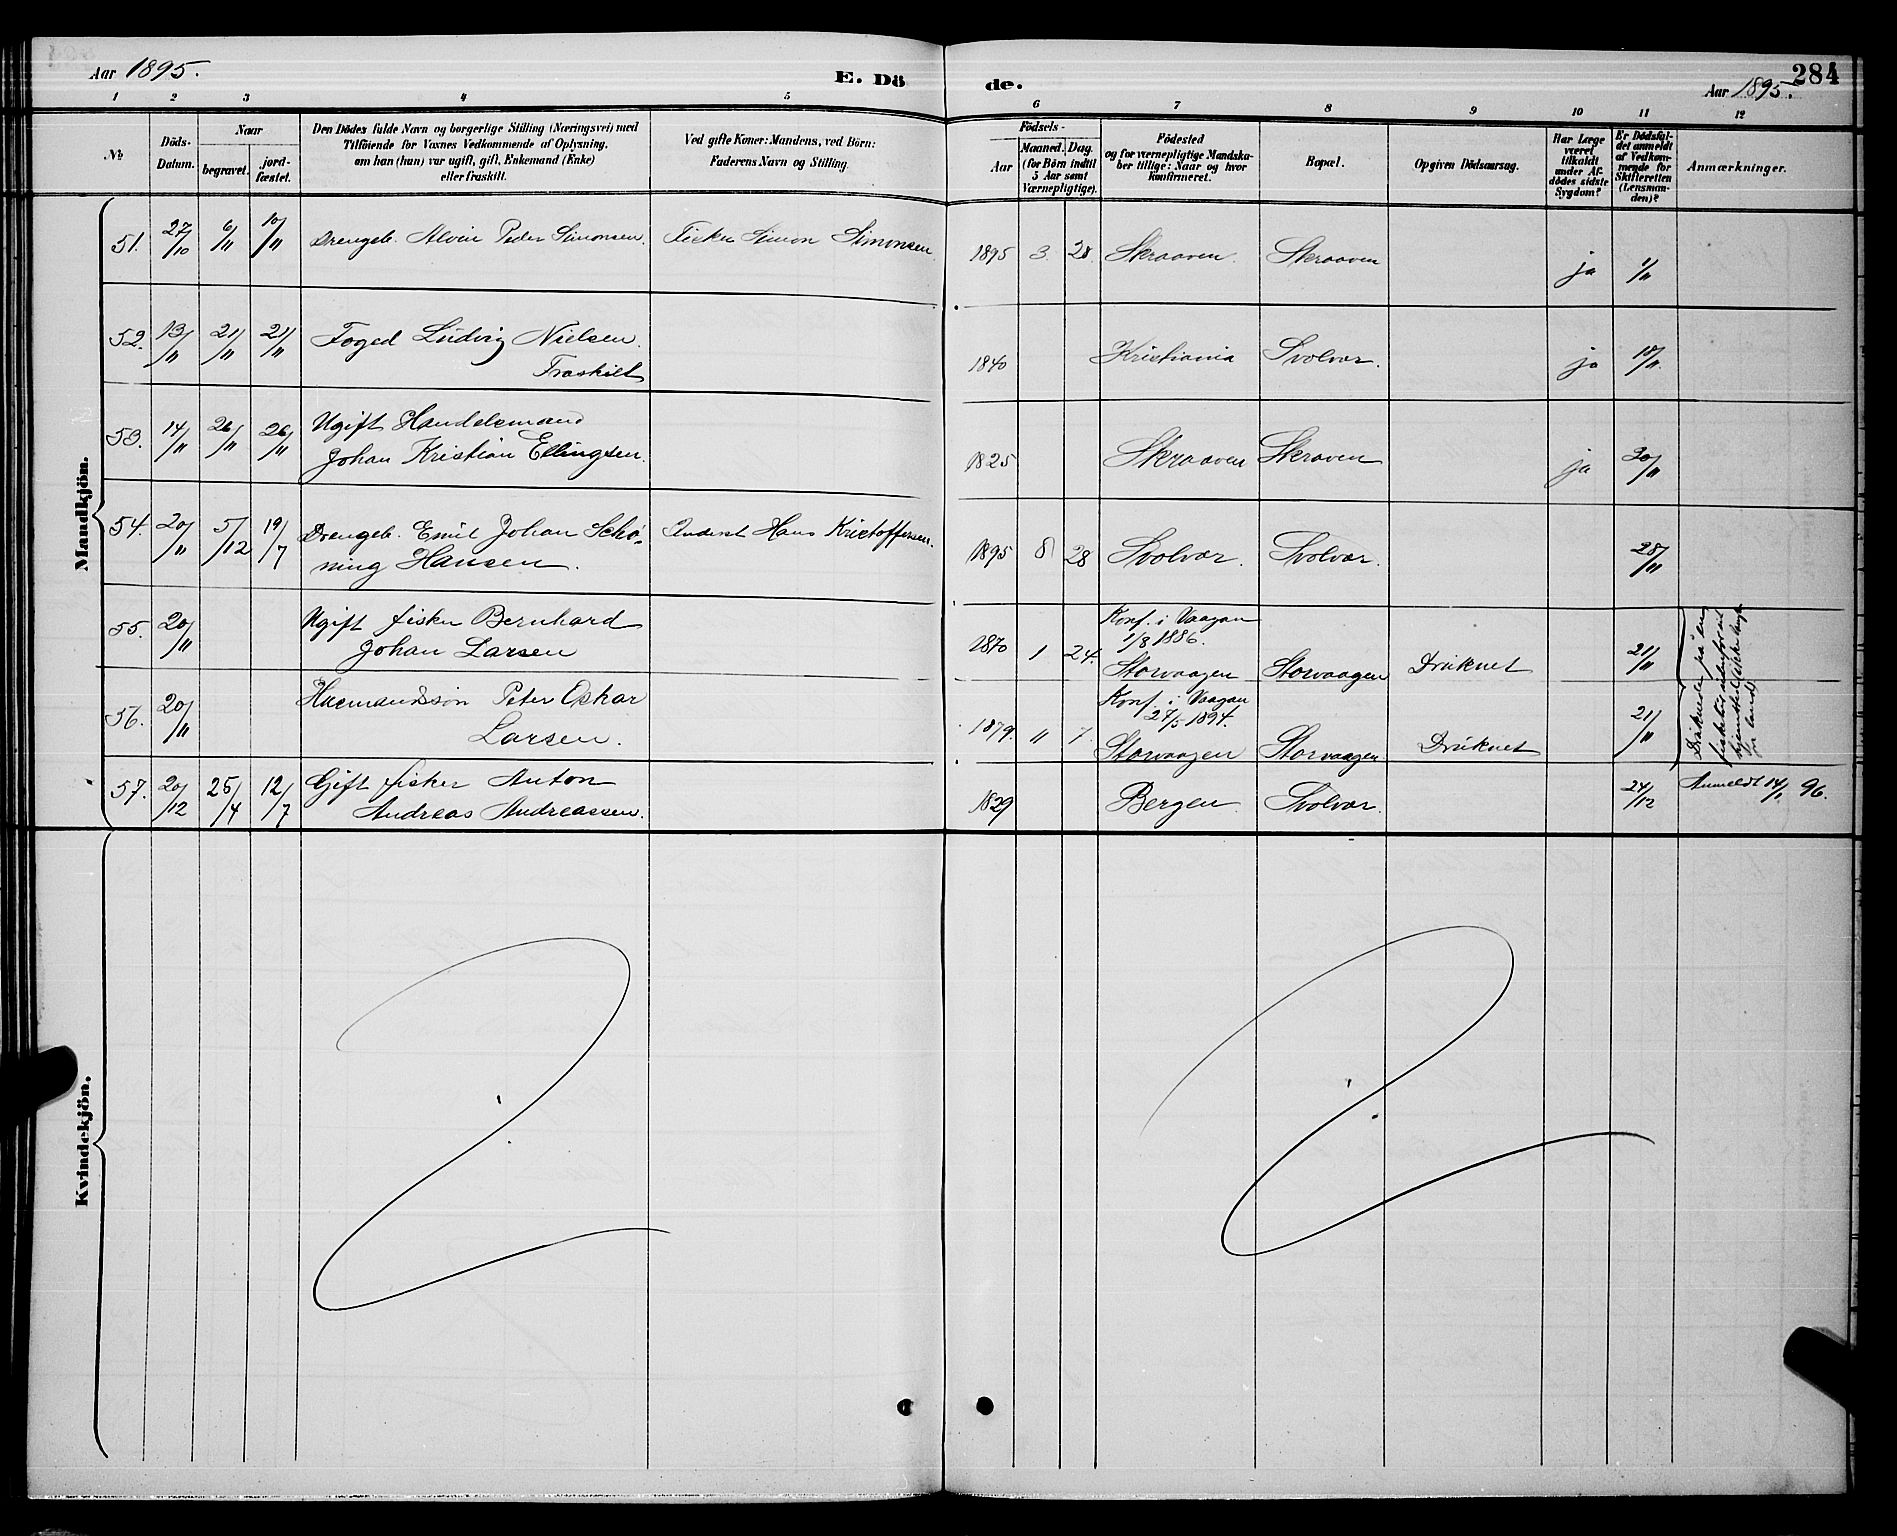 284
Aar 1895.
E. Dö
de.
Aar 1895.
1 2 3 4 5 6 7 8 9 10 11 12
№
Döds-
Datum.
Naar
begravet.
jord-
fæstet.
Den Dödes fulde Navn og borgerlige Stilling (Næringsvei) med
Tilföiende for Voxnes Vedkommende af Oplysning,
om han (hun) var ugift, gift, Enkemand (Enke)
eller fraskilt.
Ved gifte Koner: Mandens, ved Börn:
Faderens Navn og Stilling.
Födsels-
Aar
Maaned. Dag.
(for Börn indtil
5 Aar samt
Værnepligtige).
Födested
og for værnepligtige Mandska-
ber tillige: Naar og hvor
konfirmeret.
Bopæl.
Opgiven Dödsaarsag.
Har Læge
været
tilkaldt
under Af-
dödes sidste
Sygdom?
Er Dödsfal-
det anmeldt
af Vedkom-
mende for
Skifteretten
(Lensman-
den)?
Anmærkninger.
Mandkjön.
51. 27/10 6/11 10/11 Drengeb. Alvin Peder Simonsen. Fisker Simon Simonsen 1895 3. 28. Skraaven. Skraaven ja 1/11
52. 13/11 21/11 21/11 Foged Ludvig Nielsen.
Fraskilt
1840 Kristiania Svolvær. ja 15/11.
53. 14/11 26/11 26/11 Ugift Handelsmand
Johan Kristian Ellingsen.
1825 Skraaven Skraven ja 30/11
54. 20/11 5/12 19/7 Drengeb. Emil Johan Schø-
ning Hansen.
Inderst Hans Kristoffersen. 1895 8 28 Svolvær. Svolvær. 28/11
55. 20/11 Ugift fisker Bernhard
Johan Larsen
1870 1 24. Konf. i Vaagan
1/8 1886.
Storvaagen Storvaagen Druknet 21/11
56. 20/11 Husmandssøn Peter Oskar
Larsen.
1879. " 7. Konf. i Vaagan
27/5 1894.
Storvaagen Storvaagen Druknet 21/11
57. 20/12 25/4 12/7 Gift fisker Anton
Andreas Andreassen.
1829 Bergen Svolvær. 24/12 Anmeldt 14/1 96.
Kvindekjön.